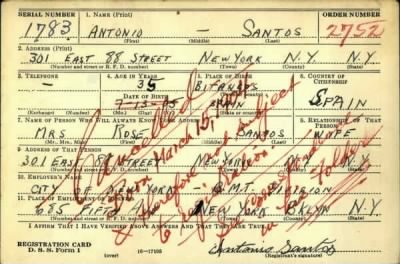 SERIAL NUMBER 1. NAME (Print) ORDER NUMBER
1783 ANTONIO - SANTOS 2752
(First) (Middle) (Last)
2. ADDRESS (Print)
301 EAST 88 STREET NEW YORK N.Y. N.Y.
(Number and street or R. F. D. number) (Town) (County) (State)
3. TELEPHONE 4. AGE IN YEARS 5. PLACE OF BIRTH 6. COUNTRY OF CITIZENSHIP
- 35
DATE OF BIRTH SPAIN
SPAIN
(Exchange) (Number) (Mo.) (Day) (Yr.) (State or country)
7. NAME OF PERSON WHO WILL ALWAYS KNOW YOUR ADDRESS 8. RELATIONSHIP OF THAT PERSON
MRS ROSE SANTOS WIFE
(Mr., Mrs., Miss) (First) (Middle) (Last)
9. ADDRESS OF THAT PERSON
301 EAST 88 STREET NEW YORK N.Y.
(Number and street or R. F. D. number) (Town) (County) (State)
10. EMPLOYER'S NAME
CITY OF NEW YORK B.M.T. DIVISION
11. PLACE OF EMPLOYMENT OR BUSINESS
685 NEW YORK BKLYN N.Y.
(Number and street or R. F. D. number) (Town) (County) (State)
I AFFIRM THAT I HAVE VERIFIED ABOVE ANSWERS AND THAT THEY ARE TRUE.
REGISTRATION CARD
D. S. S. Form 1 (over) 16-17105 Antonio Santos
(Registrant's signature)
Cancelled
March 15,
Therefore not subject
to registration
in folder